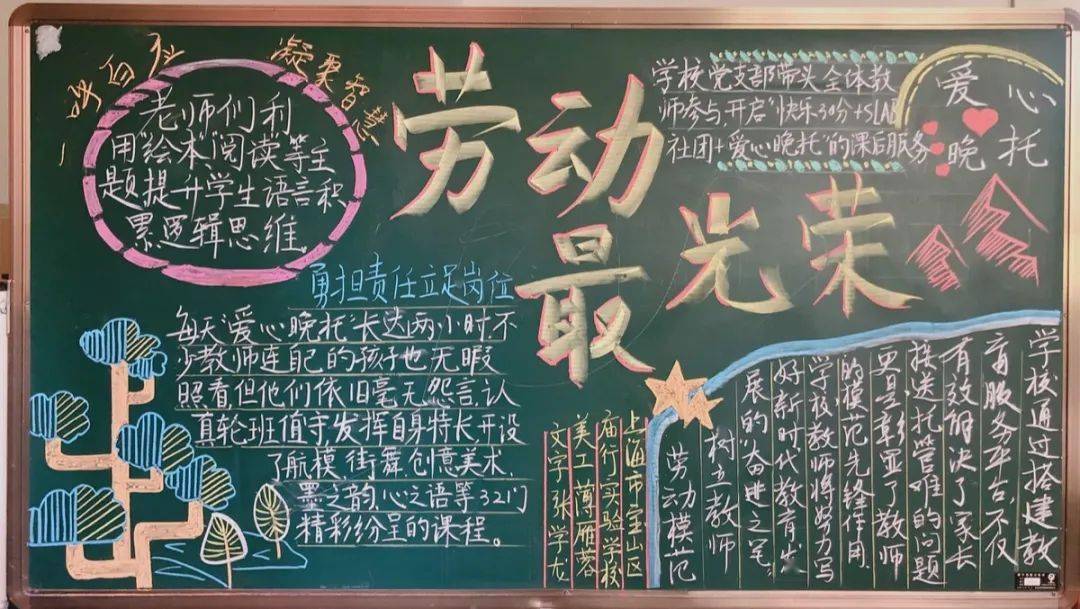 一呼百应 凝聚智慧
老师们利
用“绘本”阅读等主
题提升学生语言积
累逻辑思维。
劳动
最光荣
学校党支部带头全体教
师参与,开启“快乐30分+SLAB
社团+爱心晚托”的课后服务
爱心
晚托
勇担责任立足岗位
每天“爱心晚托”长达两小时不
少教师连自己的孩子也无暇
照看但他们依旧毫无怨言,认
真轮班值守,发挥自身特长开设
了航模、街舞创意美术、
墨之韵、心之语等32门
精彩纷呈的课程。
学校通过搭建教
育服务平台不仅
有效解决了家长
接送托管难的问题
更是彰显了教师
的模范先锋作用
学校教师将努力写
好新时代教育发
展的奋进之笔
树立教师
劳动模范
上海市宝山区
庙行实验学校
美工 薄雁蓉
文字 张学龙